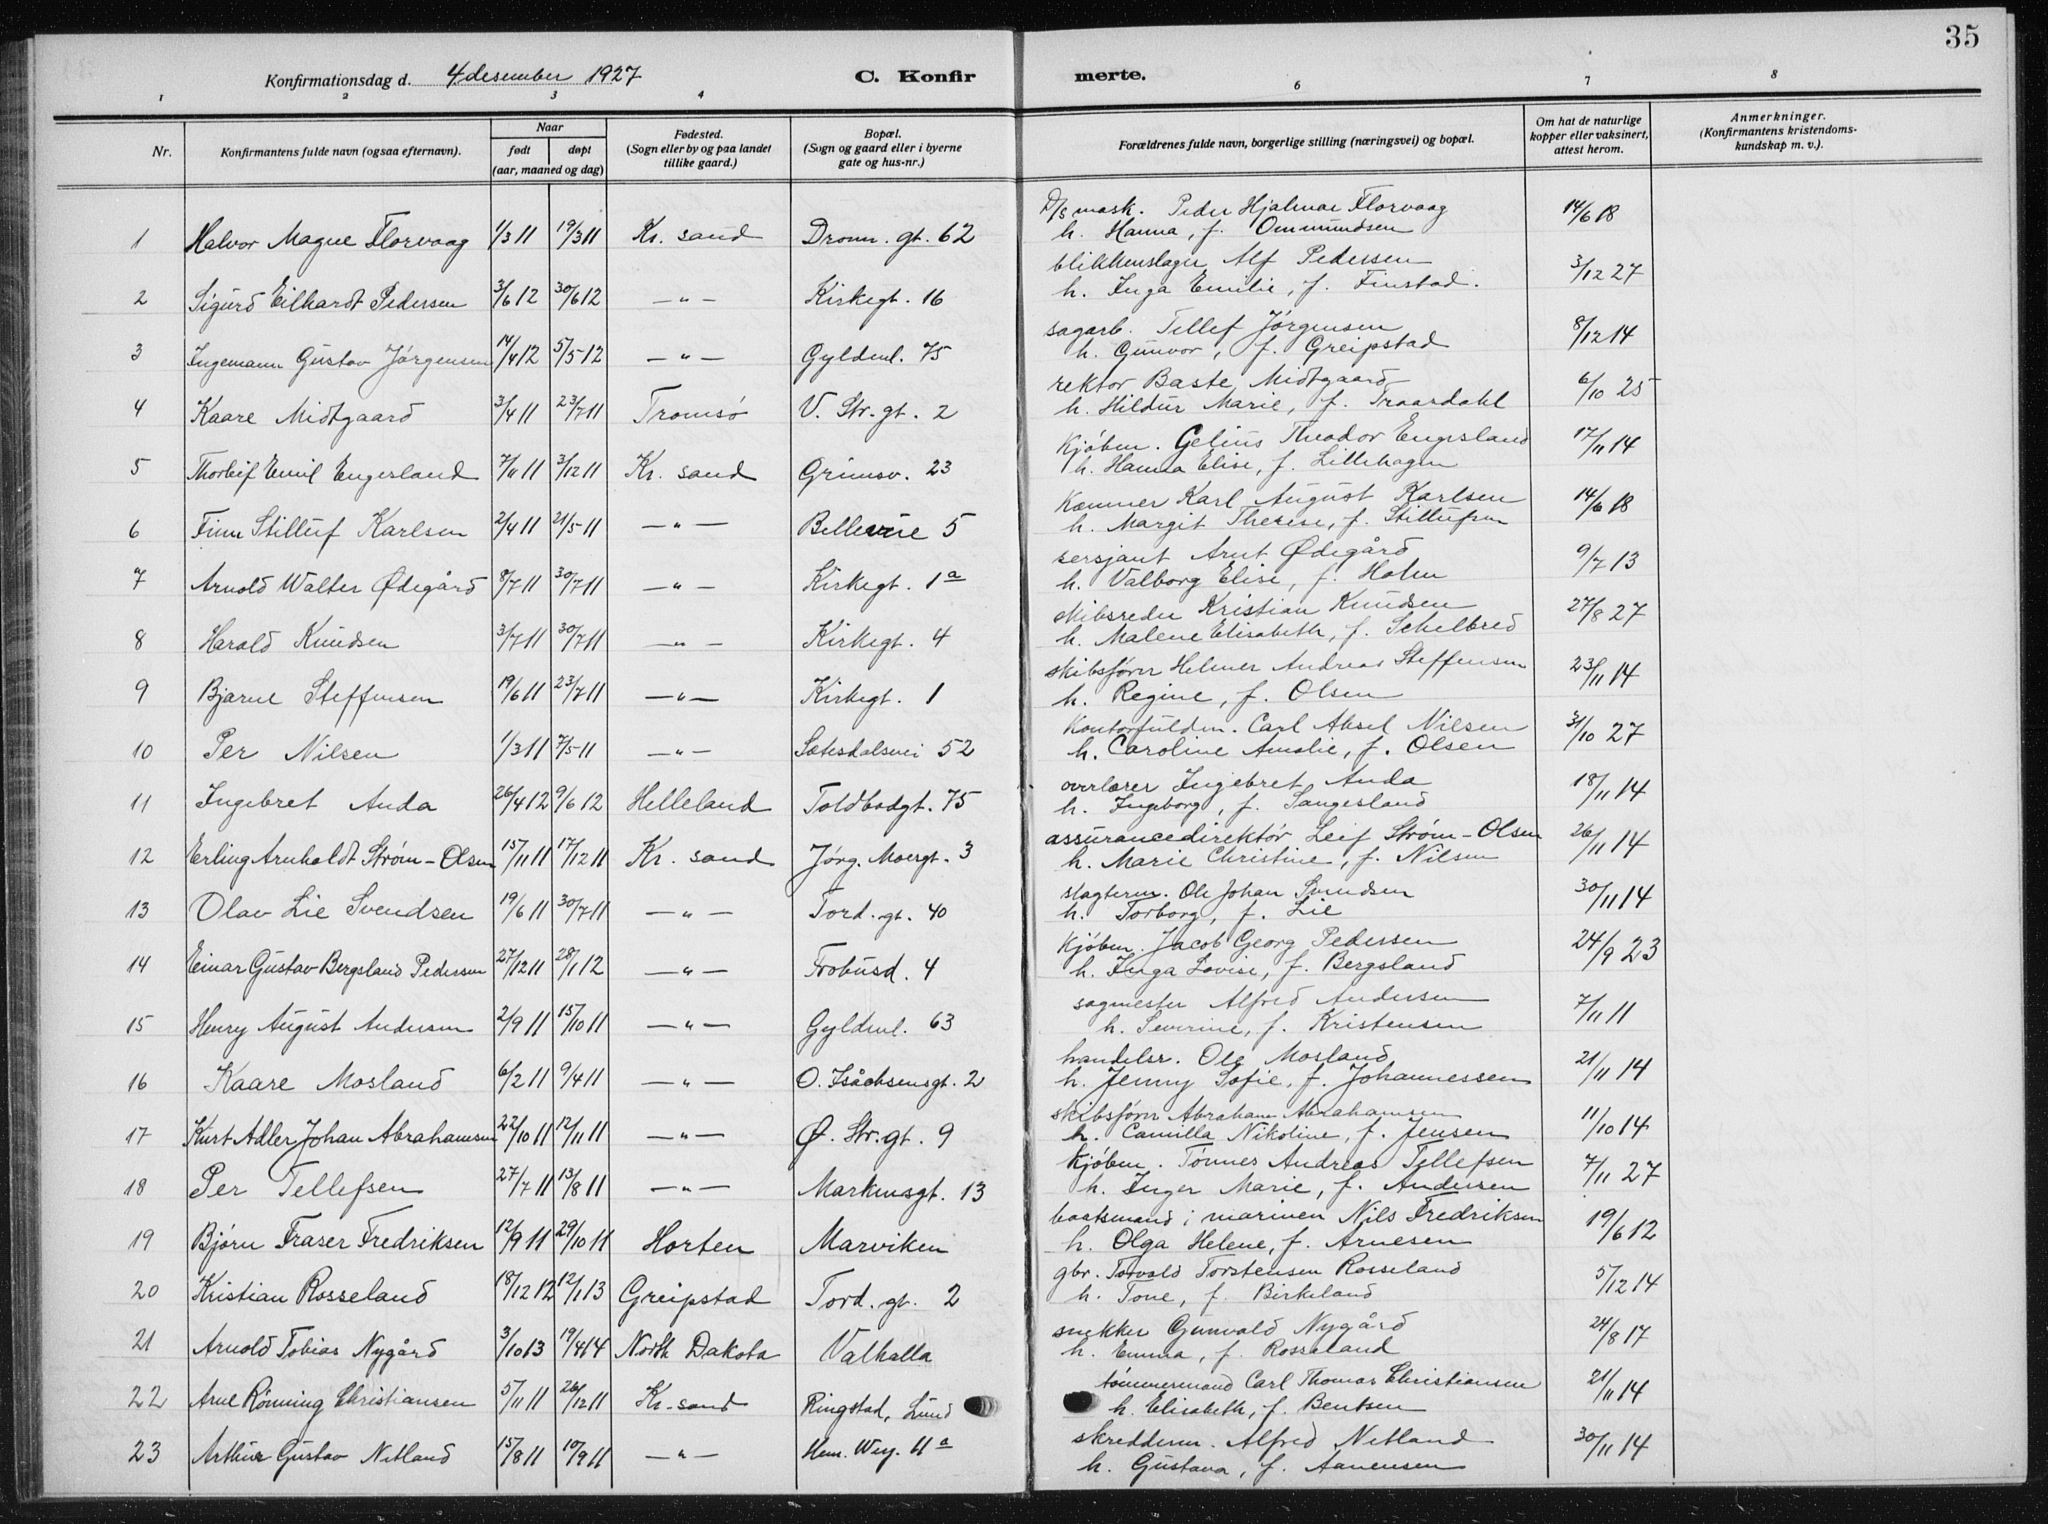 35
Konfirmationsdag d. 4 desember 1927 C. Konfirmerte.
1 2 3 4 6 7 8
Nr. Konfirmantens fulde navn (ogsaa efternavn). Naar født døpt (aar, maaned og dag) Fødested. (Sogn eller by og paa landet tillike gaard.) Bopæl. (Sogn og gaard eller i byerne gate og hus-nr.) Forældrenes fulde navn, borgerlige stilling (næringsvei) og bopæl. Om hat de naturlige kopper eller vaksinert, attest herom. Anmerkninger. (Konfirmantens kristendomskundskap m. v.).
1 Halvor Magne Florvaag 1/3 11 19/3 11 Kr. sand Dronn. gt. 62 D/s mask. Peder Hjalmar Florvaag 14/6 18
h. Hanna, f. Ommundsen
2 Sigurd Eilhardt Pedersen 3/6 12 30/6 12 —"— Kirkegt. 16 blikkenslager Alf Pedersen 3/12 27
h. Inga Emilie, f. Finstad.
3 Ingemann Gustav Jørgensen 14/4 12 5/5 12 —"— Gyldenl. 75 sagarb. Tellef Jørgensen 8/12 14
h. Gunvor, f. Greipstad
4 Kaare Midtgaard 3/4 11 23/7 11 Tromsø V. Str. gt. 2 rektor Baste Midtgaard 6/10 25
h. Hildur Marie, f. Traardahl
5 Thorleif Emil Engesland 7/11 11 3/12 11 Kr. sand Grimsv. 23 Kjøbm. Gelius Theodor Engesland 17/11 14
h. Hanna Elise, f. Lillehagen
6 Finn Stilluf Karlsen 2/4 11 21/5 11 —"— Bellevue 5 Kæmner Karl August Karlsen 14/6 18
h. Margit Therese, f. Stillufsen
7 Arnold Walter Ødegård 8/7 11 30/7 11 —"— Kirkegt. 1a sersjant Arnt Ødegård 9/7 13
h. Valborg Elise, f. Holm
8 Harald Knudsen 3/7 11 30/7 11 —"— Kirkegt. 4 skibsreder Kristian Knudsen 27/8 27
h. Malene Elisabeth, f. Schelbred
9 Bjarne Steffensen 19/6 11 23/7 11 —"— Kirkegt. 1 skibsfører Helmer Andreas Steffensen 23/11 14
h. Regine, f. Olsen
10 Per Nilsen 1/3 11 7/5 11 —"— Sætesdalsvei 52 Kontorfuldm. Carl Aksel Nilsen 31/10 27
h. Caroline Amalie, f. Olsen
11 Ingebret Anda 26/4 12 9/6 12 Helleland Toldbodgt. 75 overlærer Ingebret Anda 18/11 14
h. Ingeborg, f. Sangesland
12 Erling Arnholdt Strøm-Olsen 15/11 11 17/12 11 Kr. sand Jørg. Moesgt. 3 assurancedirektør Leif Strøm-Olsen 26/11 14
h. Marie Christine, f. Nilsen
13 Olav Lie Svendsen 19/6 11 30/7 11 —"— Tord. gt. 40 slagterm. Ole Johan Svendsen 30/11 14
h. Torborg, f. Lie
14 Einar Gustav Bergsland Pedersen 27/12 11 28/1 12 —"— Frobusd. 4 Kjøbm. Jacob Georg Pedersen 24/9 23
h. Inga Lovise, f. Bergsland
15 Henry August Andersen 2/9 11 15/10 11 —"— Gyldenl. 63 sagmester Alfred Andersen 7/11 11
h. Severine, f. Kristensen
16 Kaare Mosland 6/2 11 9/4 11 —"— O. Isåchsensgt. 2 handelsr. Ole Mosland 21/11 14
h. Jenny Sofie, f. Johannessen
17 Kurt Adler Johan Abrahamsen 22/10 11 12/11 11 —"— Ø. Str. gt. 9 skibsfører Abraham Abrahamsen 11/10 14
h. Camilla Nikoline, f. Jensen
18 Per Tellefsen 27/7 11 13/8 11 —"— Markensgt. 13 Kjøbm. Tønnes Andreas Tellefsen 7/11 27
h. Inger Marie, f. Andersen
19 Bjørn Fraser Fredriksen 12/9 11 29/10 11 Horten Marviken baatsmand i marinen Nils Fredriksen 19/6 12
h. Olga Helene, f. Arnesen
20 Kristian Rosseland 18/12 12 12/1 13 Greipstad Tord. gt. 2 gbr. Torvald Torstensen Rosseland 5/12 14
h. Tone, f. Birkeland
21 Arnold Tobias Nygård 3/10 13 19/4 14 North Dakota Valhalla snekker Gunvald Nygård 24/8 17
h. Emma, f. Rosseland
22 Arne Rönning Christiansen 5/11 11 26/12 11 Kr. sand Ringstad, Lund tømmermand Carl Thomas Christiansen 21/11 14
h. Elisabeth, f. Bentsen
23 Arthur Gustav Netland 15/8 11 10/9 11 —"— Hen. Weg. 4a skredderm. Alfred Netland 30/11 14
h. Gustava, f. Aanensen